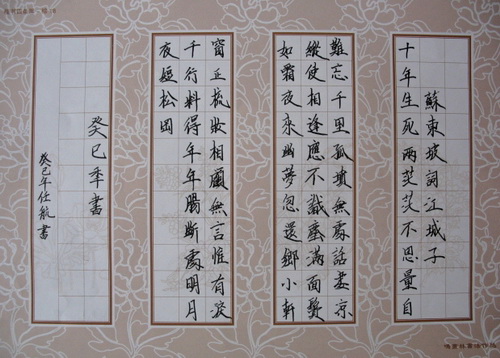 蘇東坡詞江城子
十年生死兩茫茫不思量自
難忘千里孤墳無處話凄凉
縱使相逢應不識塵滿面鬢
如霜夜來幽夢忽還鄉小軒
窗正梳妝相顧無言惟有淚
千行料得年年腸斷處明月
夜短松岡
癸巳年書
癸巳年仕航書